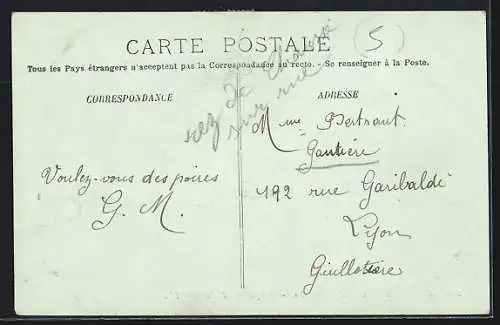 CARTE POSTALE
5
Tous les Pays étrangers n'acceptent pas la Correspondance au recto. - Se renseigner à la Poste.
rez de Chaussé
sur rue
CORRESPONDANCE
ADRESSE
Voulez-vous des poires
G. M.
Mme Bertraut
Gautière
192 rue Garibaldi
Lyon
Guillotière